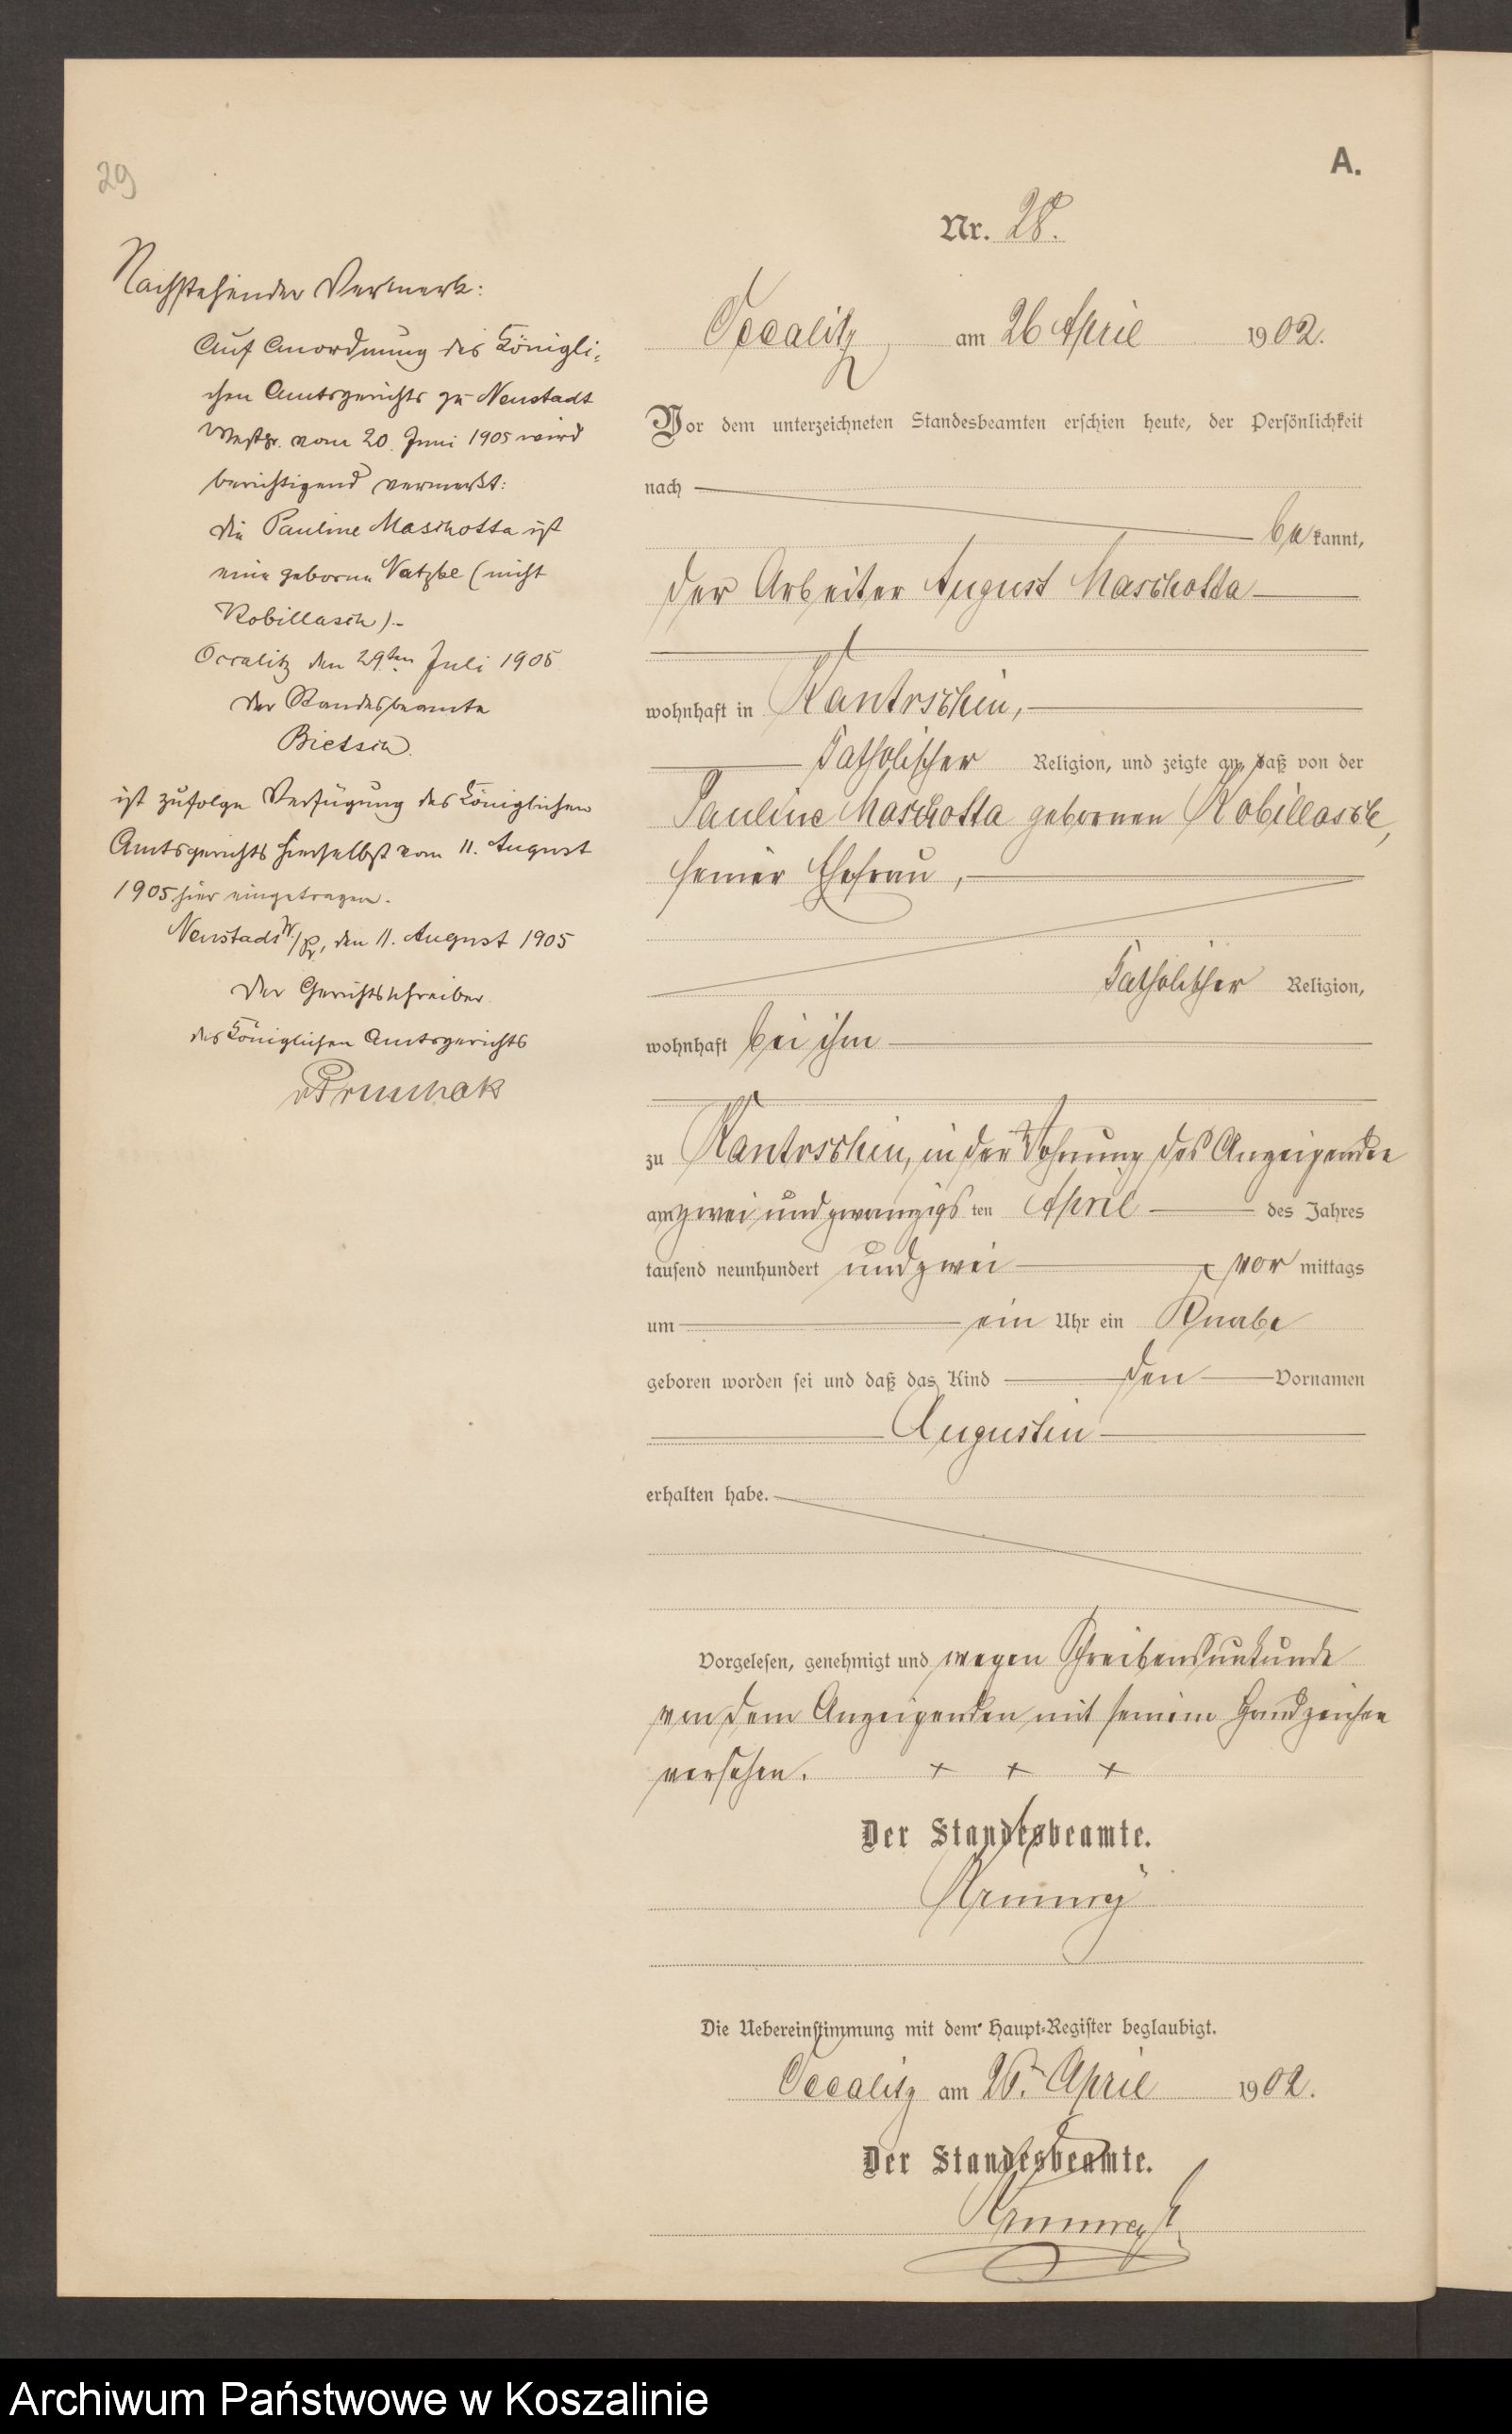 29
A.
Nr. 28.
Nachstehender Vermerk:
Auf Anordnung des Königli-
chen Amtsgerichts zu Neustadt
Westpr. vom 20. Juni 1905 wird
berichtigend vermerkt:
die Pauline Maschotta ist
eine geborne Natzke (nicht
Kobillasch).-
Occalitz den 29ten Juli 1905
Der Standesbeamte
Bietsch.
ist zufolge Verfügung des Königlichen
Amtsgerichts hierselbst vom 11. August
1905 hier eingetragen.
Neustadt W./Pr, den 11. August 1905
Der Gerichtsschreiber
des Königlichen Amtsgerichts
Occalitz, am 26 April 1902.
Vor dem unterzeichneten Standesbeamten erschien heute, der Persönlichkeit
nach
be kannt,
der Arbeiter August Maschotta
wohnhaft in Kantrschin,
katholischer Religion, und zeigte an, daß von der
Pauline Maschotta gebornen Kobillasch,
seiner Ehefrau,
katholischer Religion,
wohnhaft bei ihm
zu Kantrschin, in der Wohnung des Anzeigenden
am zwei und zwanzigs ten April des Jahres
tausend neunhundert und zwei vor mittags
um ein Uhr ein Knabe
geboren worden sei und daß das Kind den Vornamen
Augustin
erhalten habe.
Vorgelesen, genehmigt und wegen Schreibensunkunde
von dem Anzeigenden mit seinem Handzeichen
versehen. + + +
Der Standesbeamte.
Die Uebereinstimmung mit dem Haupt-Register beglaubigt.
Occalitz am 26. April 1902.
Der Standesbeamte.
Archiwum Państwowe w Koszalinie